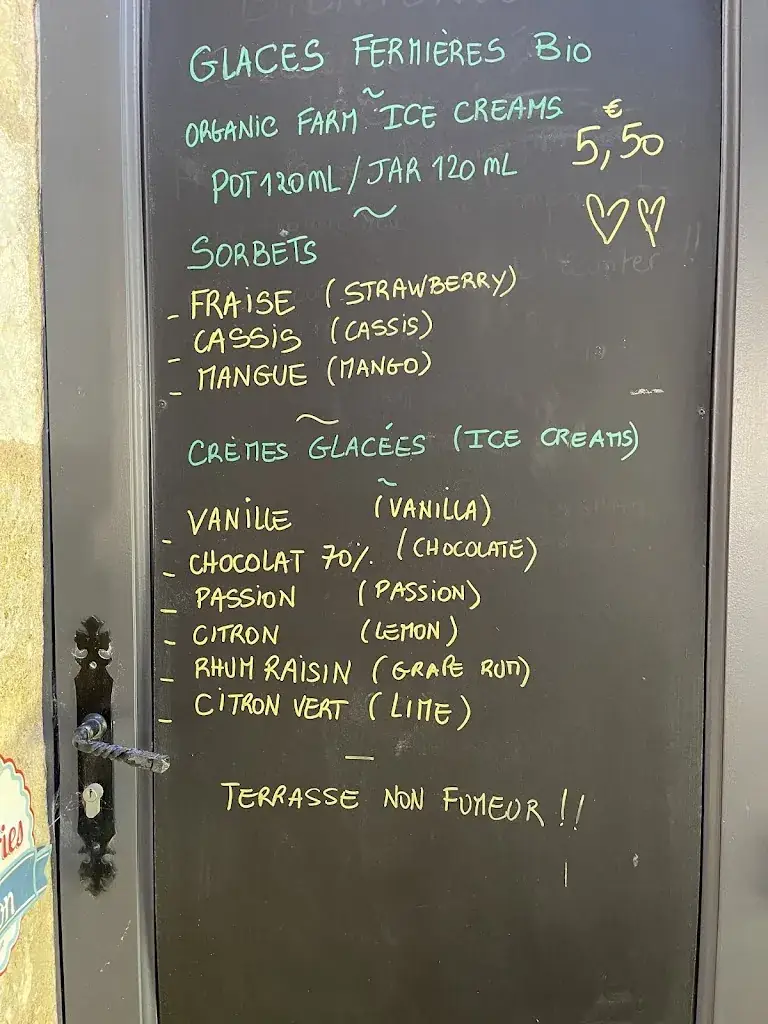 GLACES FERMIÈRES Bio
~
ORGANIC FARM ICE CREAMS
€
5,50
POT 120ML / JAR 120 ML
~
SORBETS
- FRAISE (STRAWBERRY)
- CASSIS (CASSIS)
- MANGUE (MANGO)
~
CRÈMES GLACÉES (ICE CREAMS)
~
- VANILLE (VANILLA)
- CHOCOLAT 70% (CHOCOLATE)
- PASSION (PASSION)
- CITRON (LEMON)
- RHUM RAISIN (GRAPE RUM)
- CITRON VERT (LIME)
—
TERRASSE NON FUMEUR !!
ies
on